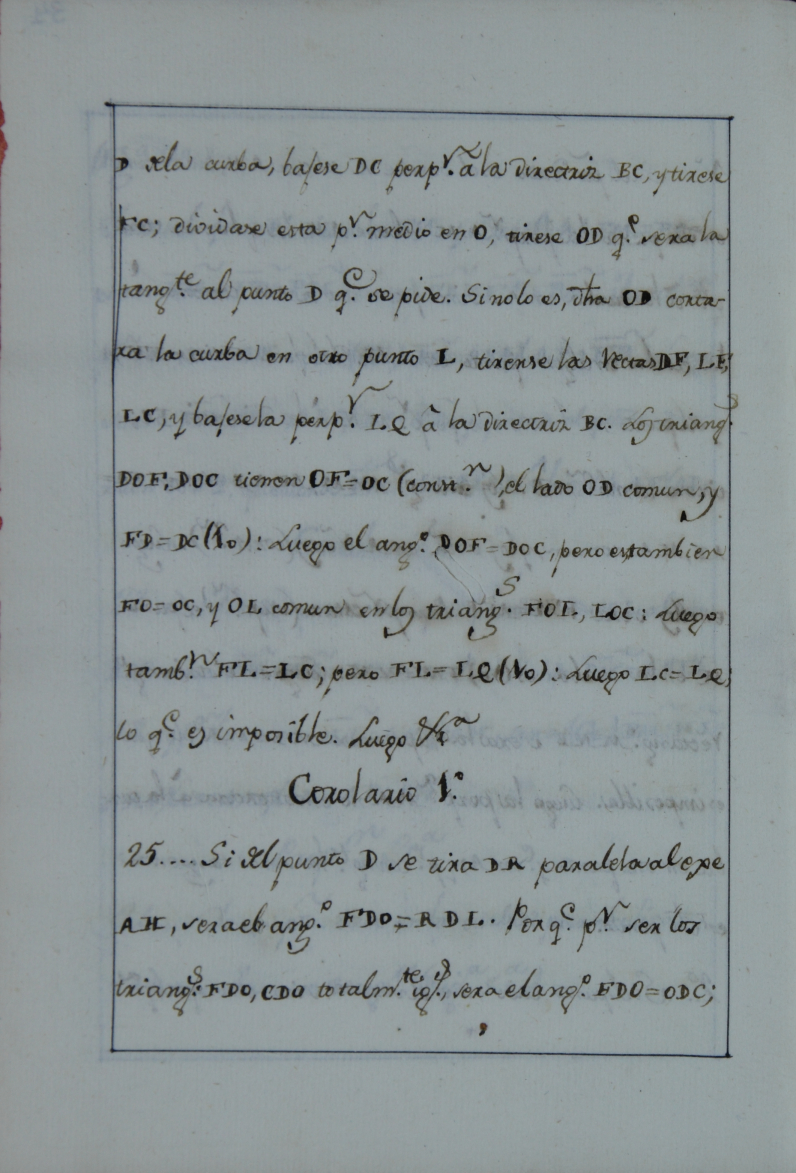 D dela curba, bajese DC perp.r à la directriz BC, y tirese
FC; dividase esta p.r medio en O, tirese OD q.e sera la
tang.te al punto D q.e se pide. Si no lo es, dha OD corta-
ra la curba en otro punto L, tirense las rectas DF, LF,
LC, y bajese la perp.r LQ à la directriz BC. Los triang.s
DOF, DOC tienen OF=OC (const.n), el lado OD comun, y
FD=DC(10): Luego el ang.o DOF=DOC, pero es tambien
FO=OC, y OL comun en los triang.s FOL, LOC: Luego
tamb.n FL=LC; pero FL=LQ(10): Luego LC=LQ;
lo q.e es imposible. Luego &.a
Corolario 1.o
25.... Si del punto D se tira DR paralela al exe
AH, sera el ang.o FDO=RDL. Porq.e p.r ser los
triang.s FDO, CDO totalm.te ig.s, sera el ang.o FDO=ODC;